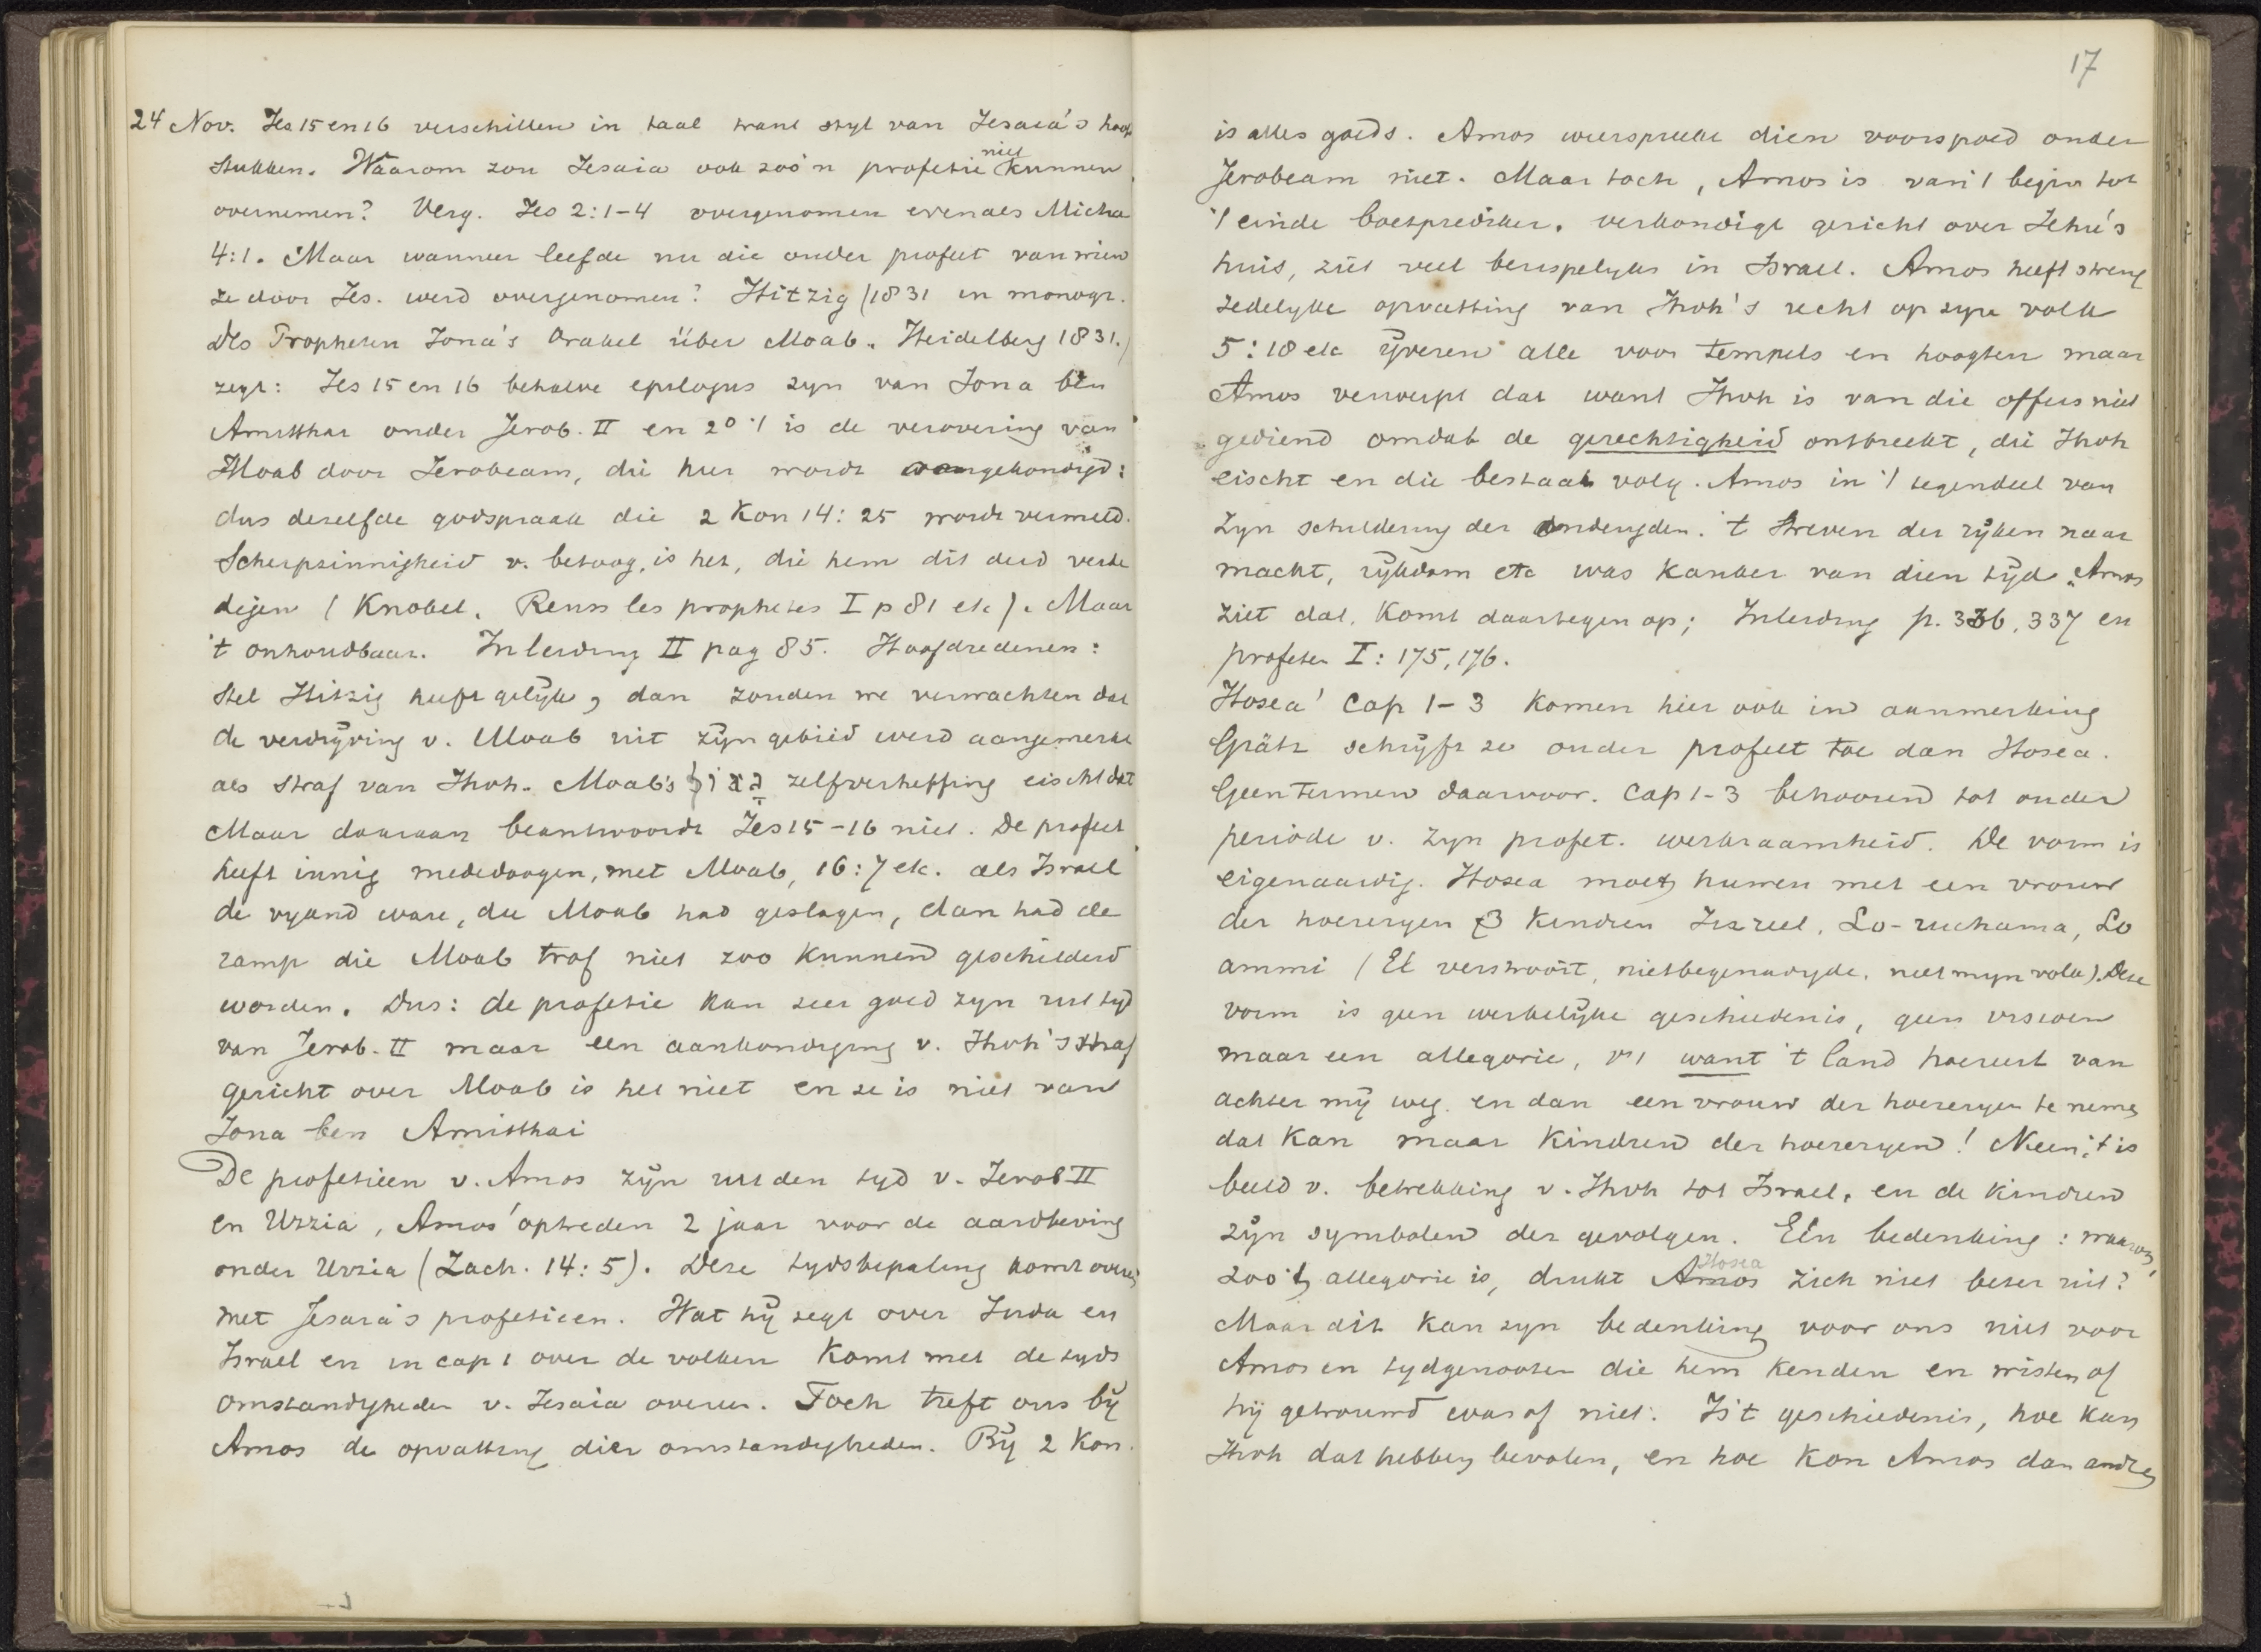 24 Nov. Jes 15 en 16 verschillen in taal trant styl van Jesaia's hoofd
stukken. Waarom zou Jesaia ook zoo'n profetie niet kunnen
overnemen? Verg. Jes 2:1-4 overgenomen evenals Micha
4:1. Maar wanneer leefde nu die ouder profeet van wien
ze door Jes. werd overgenomen? Hitzig (1831 in monogr.
Des Propheten Jona's Orakel über Moab. Heidelberg 1831.)
zegt: Jes 15 en 16 behalve epilogus zyn van Jona ben
Amitthai onder Jerob. II en 2° 't is de verovering van
Moab door Jerobeam, die hier wordt aangekondigd:
dus dezelfde godspraak die 2 Kon 14:25 wordt vermeld.
Scherpzinnigheid v. betoog is het, die hem dit deed verde
digen (Knobel, Reuss les prophetes I p 81 etc). Maar
't onhoudbaar. Inleiding II pag 85. Hoofdredenen:
Stel Hitzig heeft gelijk, dan zouden we verwachten dat
de verdrijving v. Moab uit zijn gebied werd aangemerkt
als straf van Jhvh. Moab's גאון zelfverheffing eischt dat
Maar daaraan beantwoordt Jes 15-16 niet. De profeet
heeft innig mededoogen, met Moab, 16:7 etc. als Israel
de vyand ware, die Moab had geslagen, dan had de
ramp die Moab trof niet zoo kunnen geschilderd
worden. Dus: de profetie kan zeer goed zyn uit tyd
van Jerob. II maar een aankondiging v. Jhvh's straf
gericht over Moab is het niet en ze is niet van
Jona ben Amitthai
De profetieen v. Amos zijn uit den tyd v. Jerob II
en Uzzia, Amos' optreden 2 jaar voor de aardbeving
onder Uzzia (Zach. 14:5). Deze tydsbepaling komt overeen
met Jesaia's profetieen. Wat hij zegt over Juda en
Israel en in cap 1 over de volken komt met de tyds
omstandigheden v. Jesaia overeen. Toch treft ons bij
Amos de opvatting dier omstandigheden. Bij 2 Kon.
17
is alles goeds. Amos weerspreekt dien voorspoed onder
Jerobeam niet. Maar toch, Amos is van 't begin tot
't einde boetprediker. verkondigt gericht over Jehu's
huis, ziet veel berispelyks in Israel. Amos heeft streng
zedelyke opvatting van Jhvh's recht op zyn volk
5:18 etc ijveren alle voor tempels en hoogten maar
Amos verwerpt dat want Jhvh is van die offers niet
gediend omdat de gerechtigheid ontbreekt, die Jhvh
eischt en die bestaat volg. Amos in 't tegendeel van
zyn schildering der ondeugden. 't Streven der rijken naar
macht, rijkdom etc was kanker van dien tijd. Amos
ziet dat. Komt daartegen op; Inleiding p. 336, 337 en
profeten I: 175, 176.
Hosea' Cap 1-3 komen hier ook in aanmerking
Grätz schrijft ze ouder profeet toe dan Hosea.
Geen termen daarvoor. Cap 1-3 behooren tot ouder
periode v. zyn profet. werkzaamheid. De vorm is
eigenaardig. Hosea moet huwen met een vrouw
der hoereryen & 3 kindren Jizreel, Lo-ruchama, Lo
ammi (El verstrooit, nietbegenadigde, niet myn volk). Deze
vorm is geen werkelijke geschiedenis, geen visioen
maar een allegorie, vs 1 want 't land hoereert van
achter mij weg. en dan een vrouw der hoereryen te nemen
dat kan maar kindren der hoereryen! Neen, 't is
beeld v. betrekking v. Jhvh tot Israel, en de kindren
zijn symbolen der gevolgen. Eén bedenking: waarom,
zoo 't allegorie is, drukt Amos Hosea zich niet beter uit?
Maar dit kan zyn bedenking voor ons niet voor
Amos en tydgenooten die hem kenden en wisten of
hij getrouwd was of niet. Is 't geschiedenis, hoe kan
Jhvh dat hebben bevolen, en hoe kon Amos dan anders